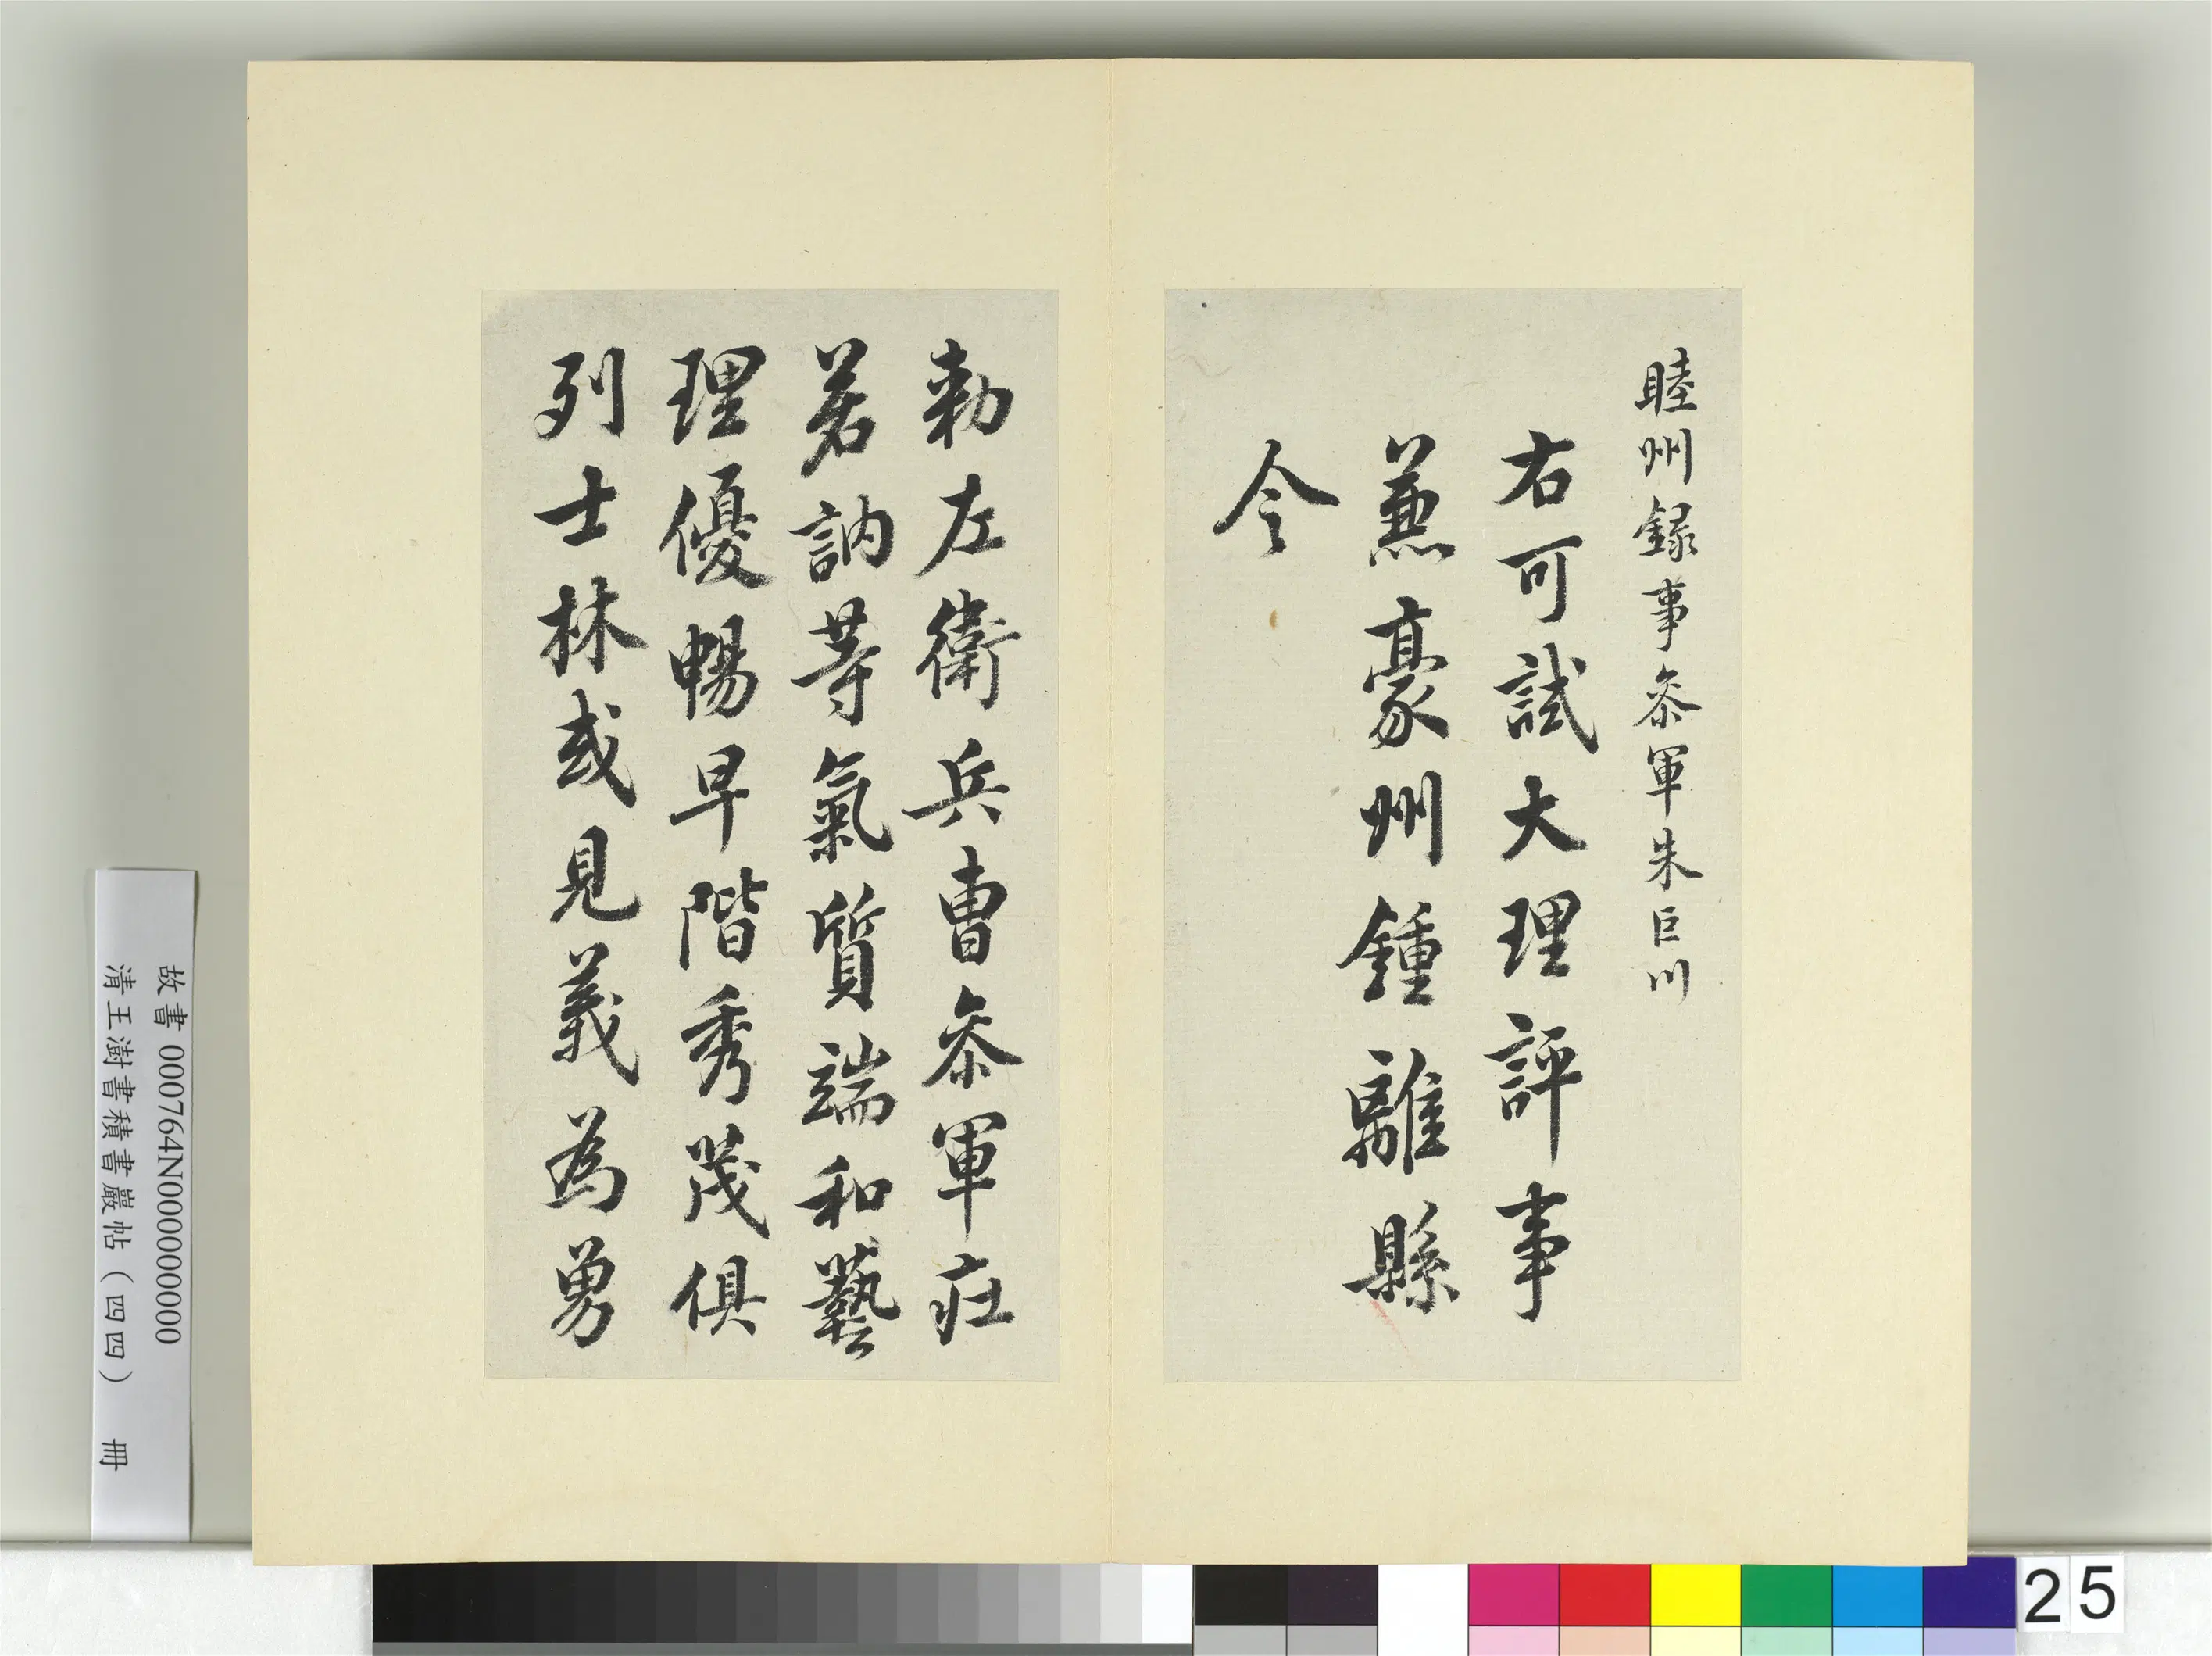 睦州錄事叅軍朱巨川
右可試大理評事
兼豪州鍾離縣
令
勑左衛兵曹叅軍莊
若訥等氣質端和藝
理優暢早階秀茂俱
列士林或見義為勇
故書 000764N000000000
清王澍書積書巖帖（四四） 冊
25